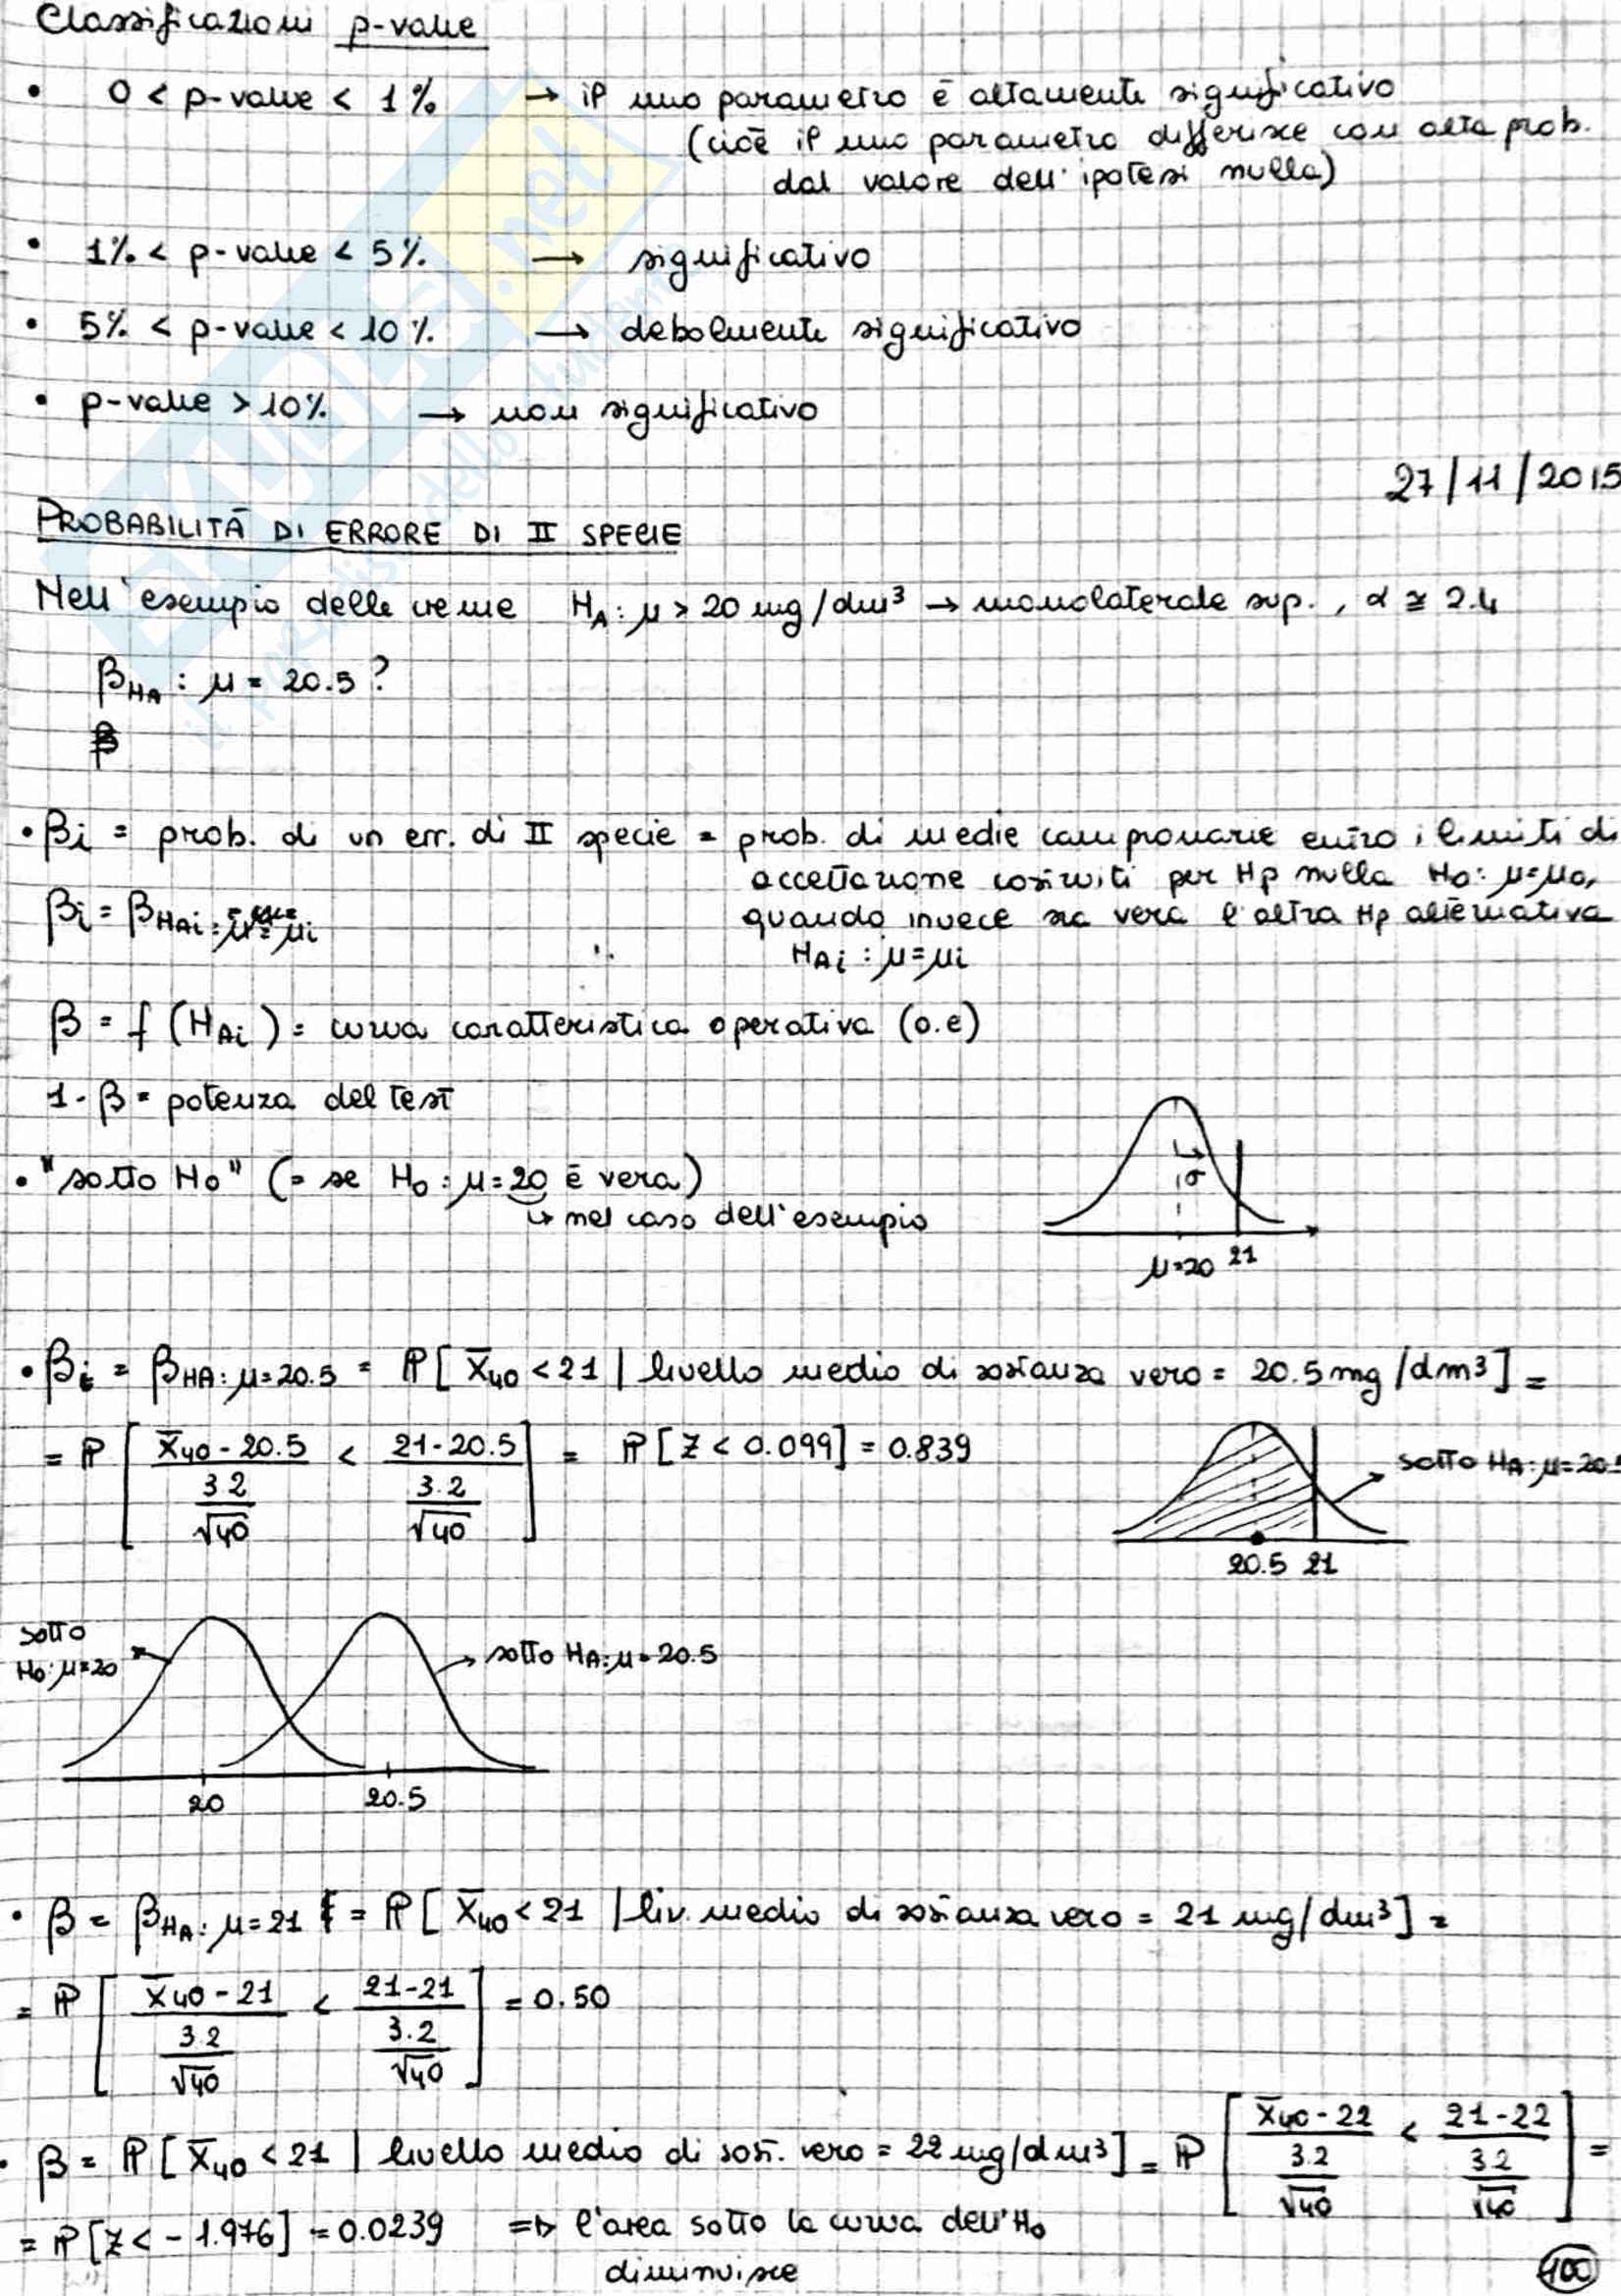 Classificazioni p-value
• 0 < p-value < 1% → il mio parametro è altamente significativo
(cioè il mio parametro differisce con alta prob.
dal valore dell'ipotesi nulla)
• 1% < p-value < 5% → significativo
• 5% < p-value < 10% → debolmente significativo
• p-value > 10% → non significativo
27/11/2015
PROBABILITÀ DI ERRORE DI II SPECIE
Nell'esempio delle HA: μ > 20 mg/dm³ → monolaterale sup., α ≅ 2.4
βHA: μ = 20.5?
• βi = prob. di un err. di II specie = prob. di medie campionarie entro i limiti di
accettazione costruiti per Hp nulla H0: μ=μ0,
βi = βHAi: μ=μi
quando invece sia vera l'altra Hp alternativa
HAi: μ=μi
β = f(HAi) = curva caratteristica operativa (o.c)
1-β = potenza del test
• "sotto H0" (= se H0: μ=20 è vera)
↳ nel caso dell'esempio
σ
μ=20 21
• βi = βHA: μ=20.5 = ℙ[X̄40 < 21 | livello medio di sostanza vero = 20.5 mg/dm³] =
= ℙ[(X̄40 - 20.5)/(3.2/√40) < (21-20.5)/(3.2/√40)] = ℙ[Z < 0.099] = 0.839
sotto HA: μ=20.5
20.5 21
sotto
H0: μ=20
sotto HA: μ=20.5
20 20.5
• β = βHA: μ=21 = ℙ[X̄40 < 21 | liv. medio di sostanza vero = 21 mg/dm³] =
= ℙ[(X̄40 - 21)/(3.2/√40) < (21-21)/(3.2/√40)] = 0.50
• β = ℙ[X̄40 < 21 | livello medio di sost. vero = 22 mg/dm³] = ℙ[(X̄40 - 22)/(3.2/√40) < (21-22)/(3.2/√40)] =
= ℙ[Z < -1.976] = 0.0239 ⇒ l'area sotto la curva dell'H0
diminuisce
100